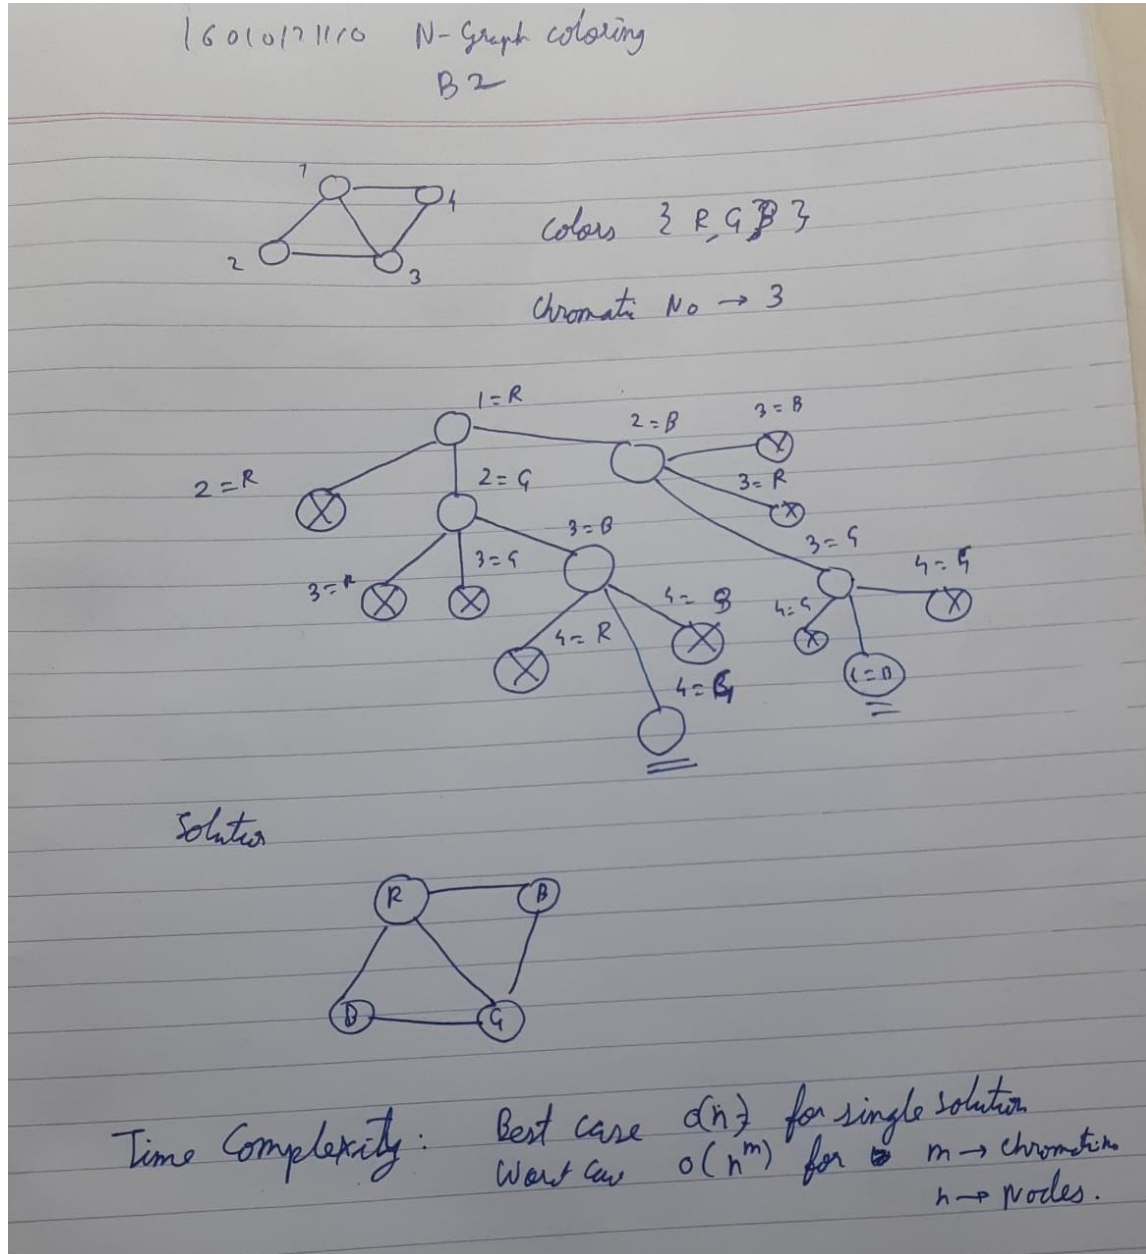 16010121110 N-Graph coloring
B2
1
4
2
3
colors { R, G, B }
Chromati No → 3
1=R
2=B
3=B
2=R
2=G
3=R
3=B
3=R
3=G
3=G
4=G
4=R
4=B
4=G
4=G
Solution
R
B
B
G
Time Complexity: Best case O(n) for single solution
Worst case O(n^m) for m → chromatic no
n → Nodes.